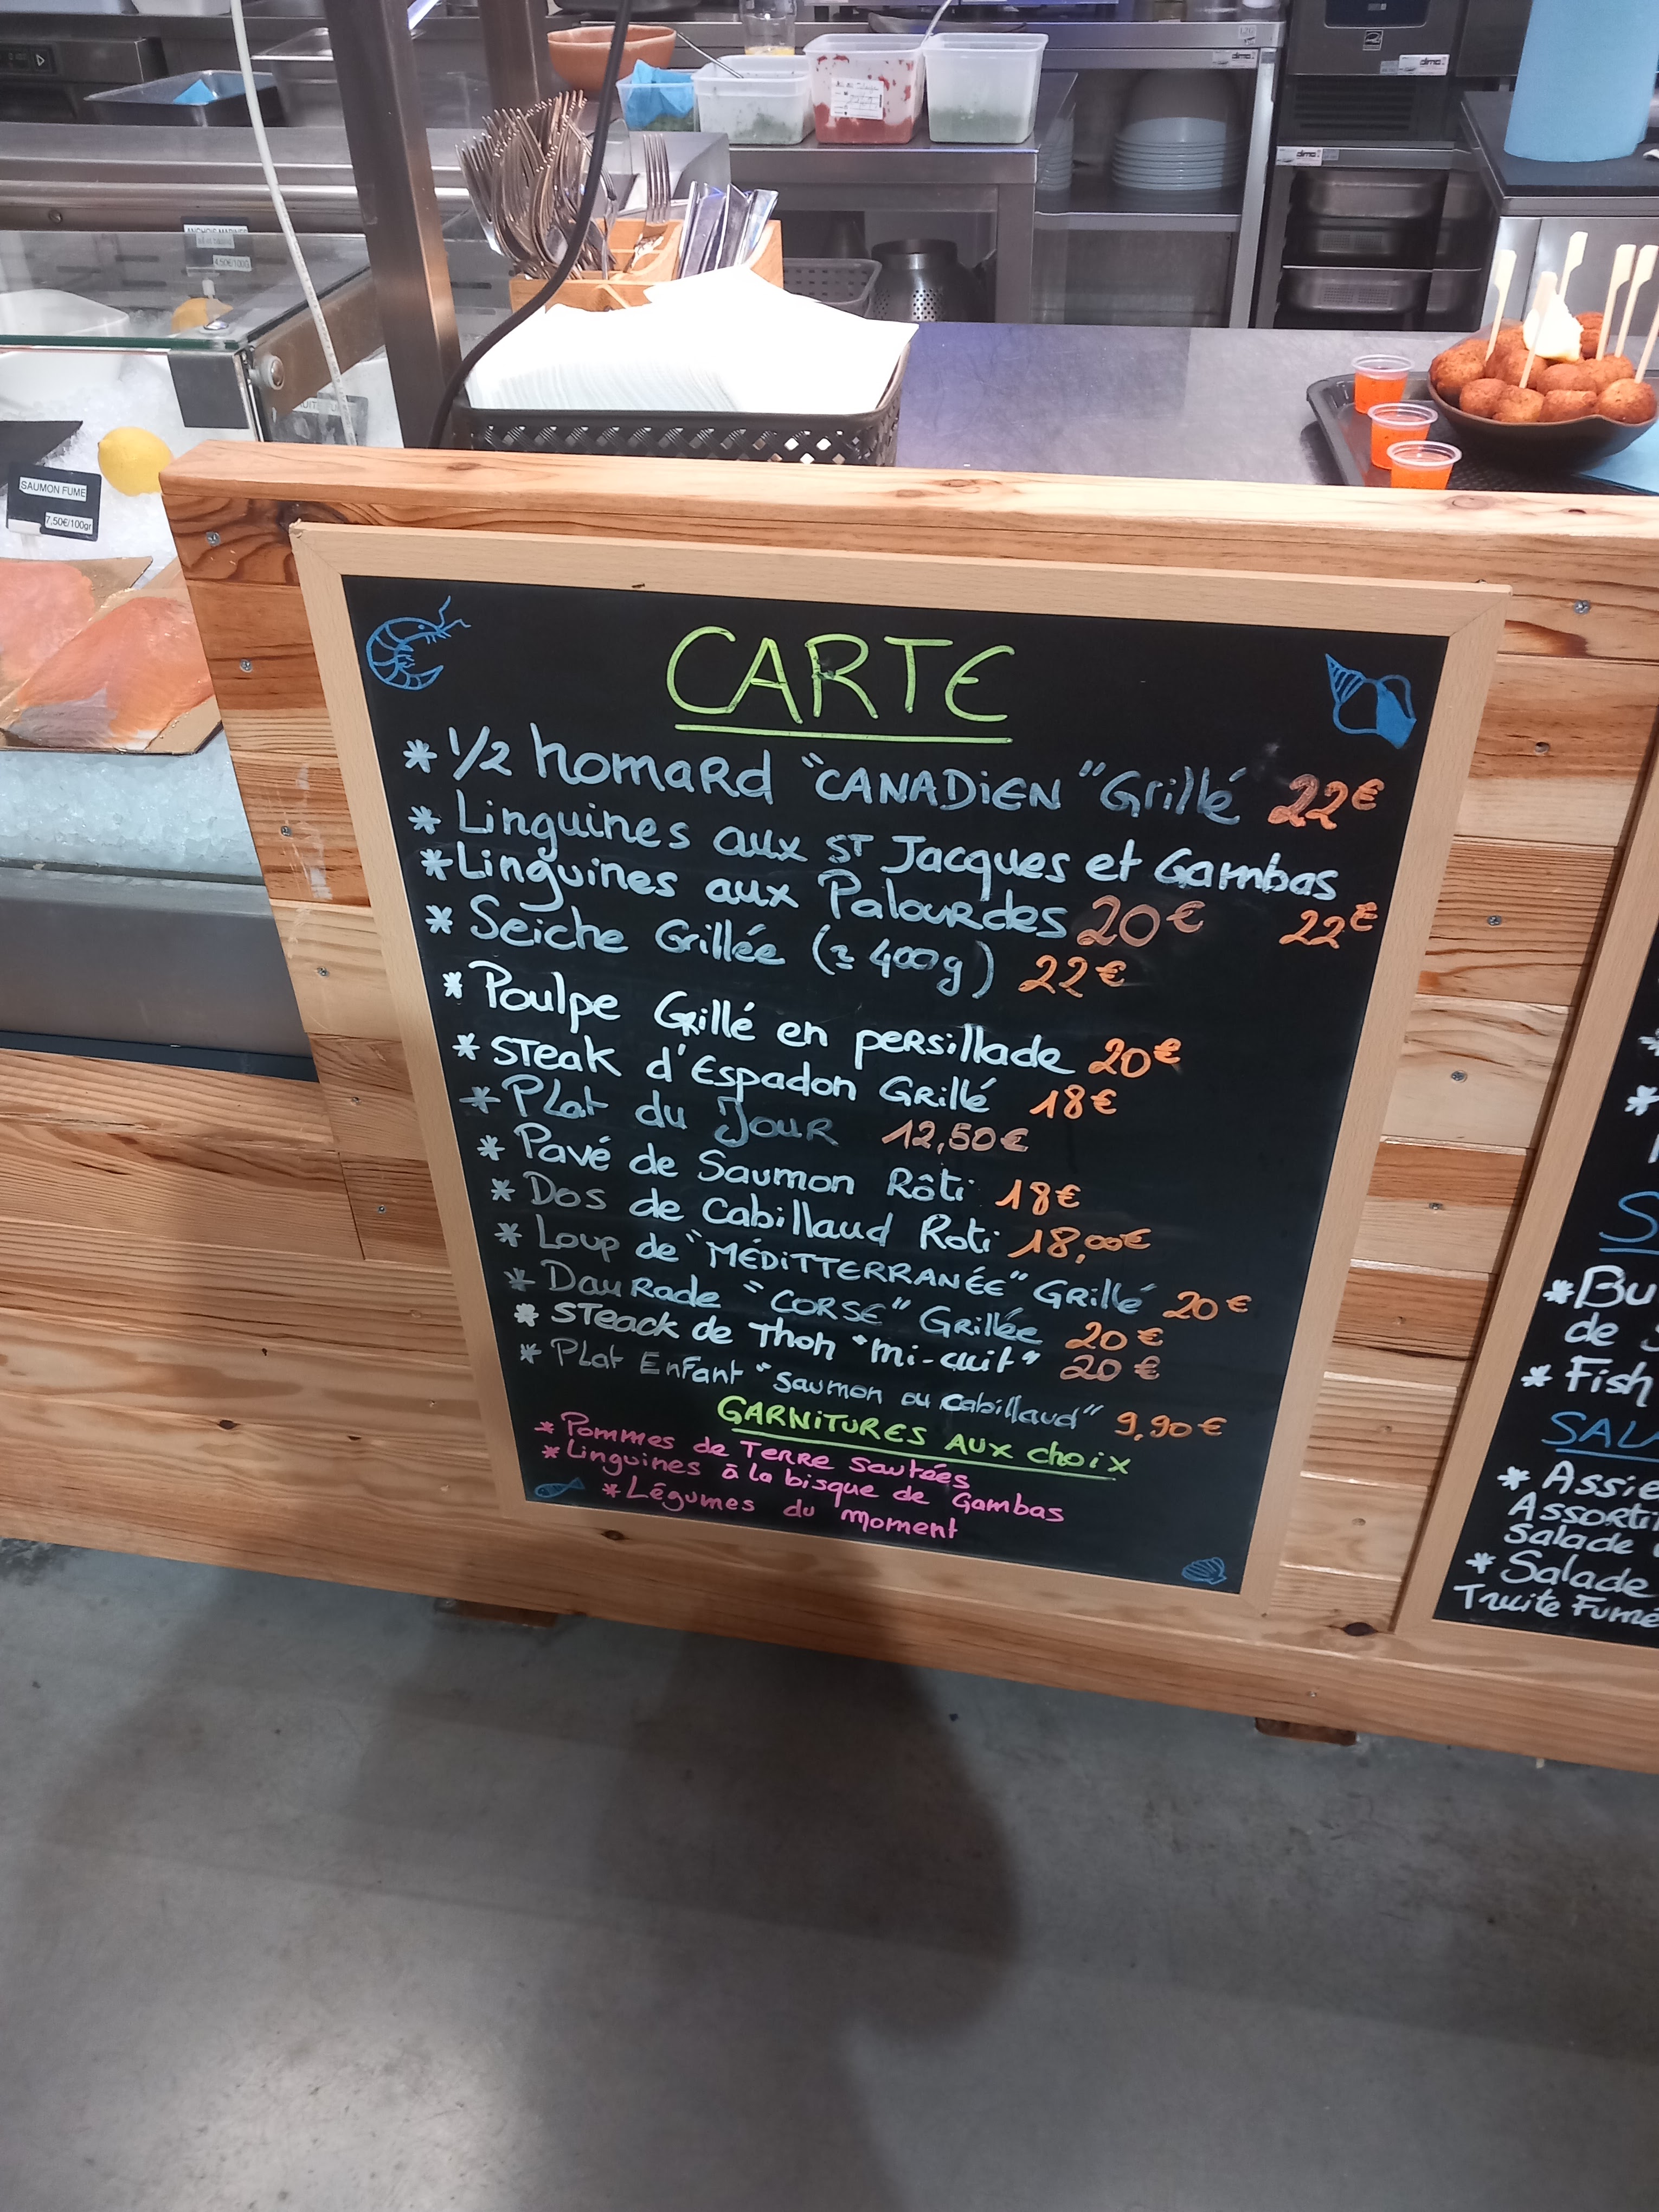 ANCHOIS MARINES
4.50€/100G
SAUMON FUME
7,50€/100gr
dima
dima
CARTE
* 1/2 homard "CANADIEN" Grillé 22€
* Linguines aux ST Jacques et Gambas
22€
* Linguines aux Palourdes 20€
* Seiche Grillée (≃ 400g) 22€
* Poulpe Grillé en persillade 20€
* Steak d'Espadon Grillé 18€
* Plat du Jour 12,50€
* Pavé de Saumon Rôti 18€
* Dos de Cabillaud Roti 18,00€
* Loup de "MÉDITTERRANÉE" Grillé 20€
* Daurade "CORSE" Grillée 20€
* Steack de Thon "mi-cuit" 20€
* Plat Enfant "Saumon ou Cabillaud" 9,90€
GARNITURES AUX choix
* Pommes de Terre Sautées
* Linguines à la bisque de Gambas
* Légumes du moment
* Bu
de
* Fish
SALA
* Assie
Assorti
Salade
* Salade
Truite Fumé